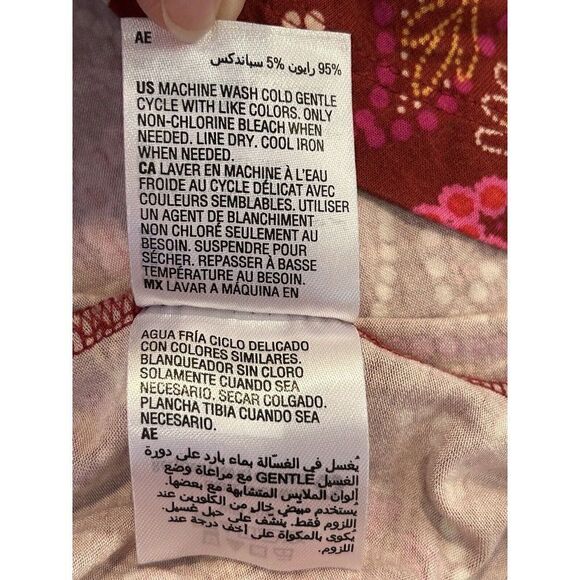 AE
95% رايون 5% سباندكس
US MACHINE WASH COLD GENTLE
CYCLE WITH LIKE COLORS. ONLY
NON-CHLORINE BLEACH WHEN
NEEDED. LINE DRY. COOL IRON
WHEN NEEDED.
CA LAVER EN MACHINE À L'EAU
FROIDE AU CYCLE DÉLICAT AVEC
COULEURS SEMBLABLES. UTILISER
UN AGENT DE BLANCHIMENT
NON CHLORÉ SEULEMENT AU
BESOIN. SUSPENDRE POUR
SÉCHER. REPASSER À BASSE
TEMPÉRATURE AU BESOIN.
MX LAVAR A MÁQUINA EN
AGUA FRÍA CICLO DELICADO
CON COLORES SIMILARES.
BLANQUEADOR SIN CLORO
SOLAMENTE CUANDO SEA
NECESARIO. SECAR COLGADO.
PLANCHA TIBIA CUANDO SEA
NECESARIO.
AE
يُغسل في الغسّالة بماء بارد على دورة
الغسيل GENTLE مع مراعاة وضع
ألوان الملابس المتشابهة مع بعضها.
يستخدم مبيض خالٍ من الكلورين عند
اللزوم فقط. ينشّف على حبل غسيل.
يُكوى بالمكواة على أخف درجة عند
اللزوم.